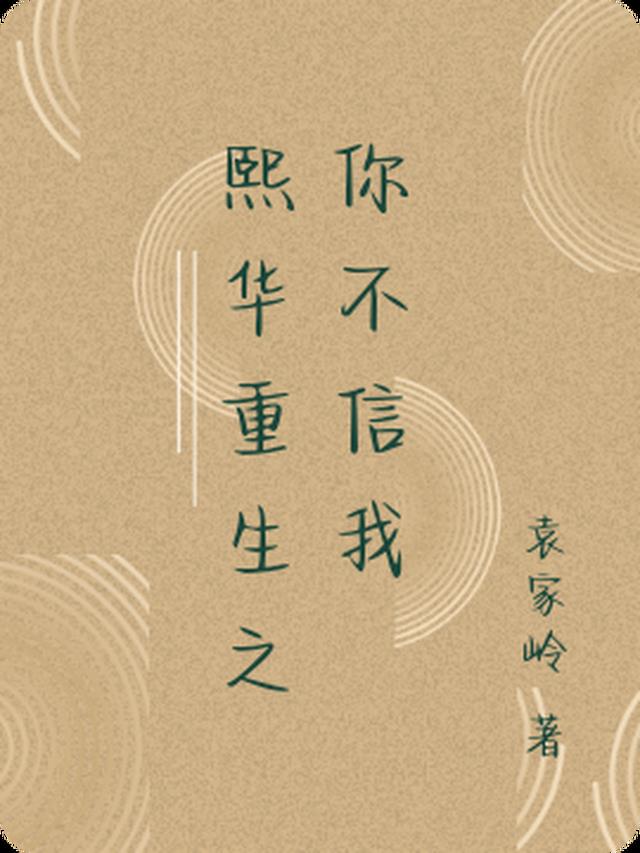 熙华重生之
你不信我
袁家岭 著